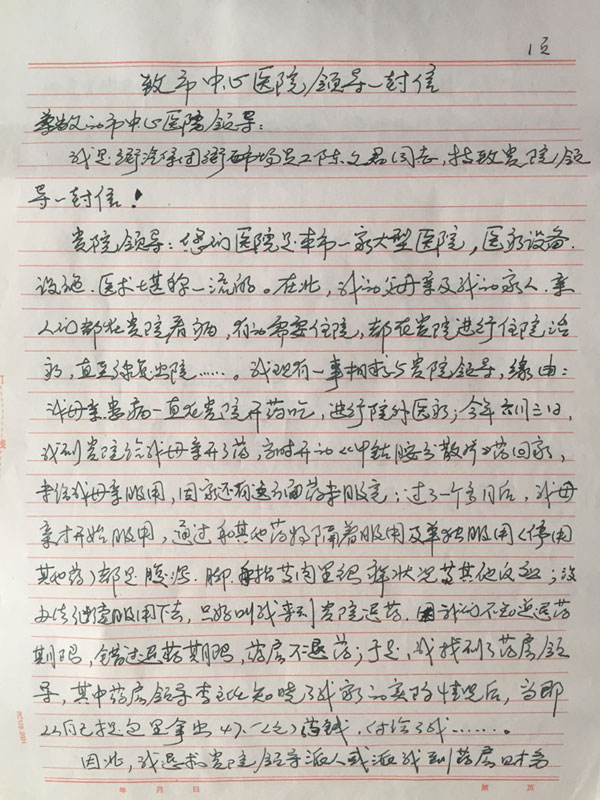 1页
致市中心医院领导一封信
尊敬的市中心医院领导：
我是衡汽集团衡西市场员工陈文君同志，特致贵院领
导一封信！
贵院领导：您们医院是本市一家大型医院，医疗设备、
设施、医术堪称一流的。在此，我的父母亲及我的家人、亲
人们都在贵院看病，有的需要住院，都在贵院进行住院治
疗，直至康复出院……。我现有一事相求与贵院领导，缘由：
我母亲患病一直在贵院开药吃，进行院外医疗；今年六月三日，
我到贵院给我母亲开了药，当时开的《甲钴胺分散片》药回家，
未给我母亲服用，因家还有这方面药未服完；过了一个多月后，我母
亲才开始服用，通过和其他药物隔着服用及单独服用（停用
其他药）都是腹泻、脚手指等肉里很痒状况等其他反应；没
办法继续服用下去，只好叫我来到贵院退药，因我们不知道退药
期限，错过退药期限，药房不退药；于是，我找到了药房领
导，其中药房领导李主任知晓了我家的实际情况后，当即
以自己挎包里拿出47.1（元）药钱，付给了我……。
因此，我恳求贵院领导派人或派我到药房财务
年 月 日
第 页